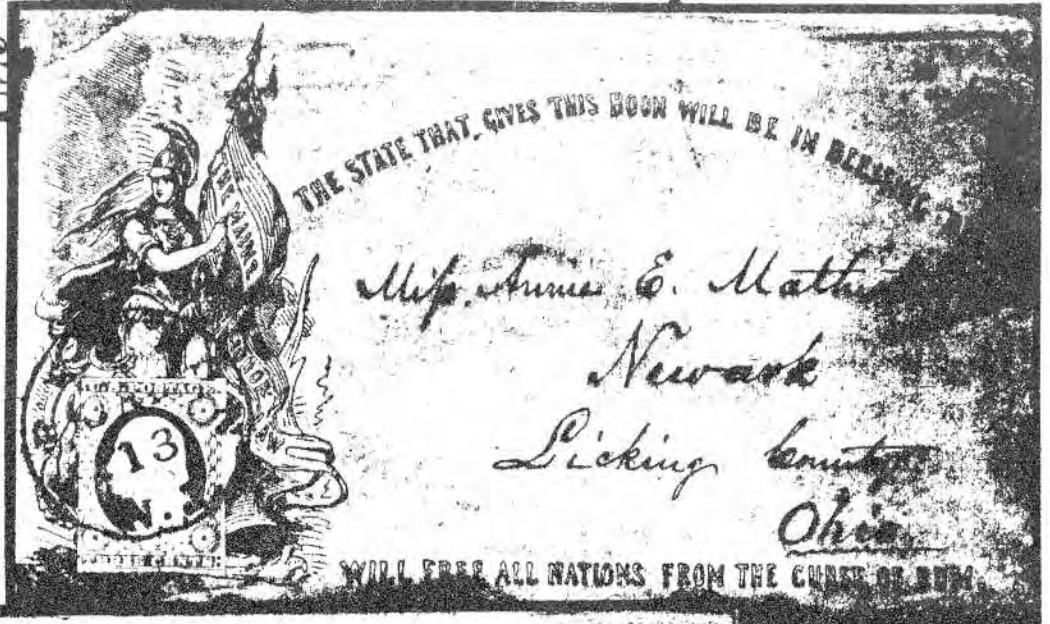 THE STATE THAT GIVES THIS BOON WILL BE IN
THE MAINE
Miss Annie E.
Newark
Licking County
Ohio
13
N.
WILL FREE ALL NATIONS FROM THE CURSE OF RUM.